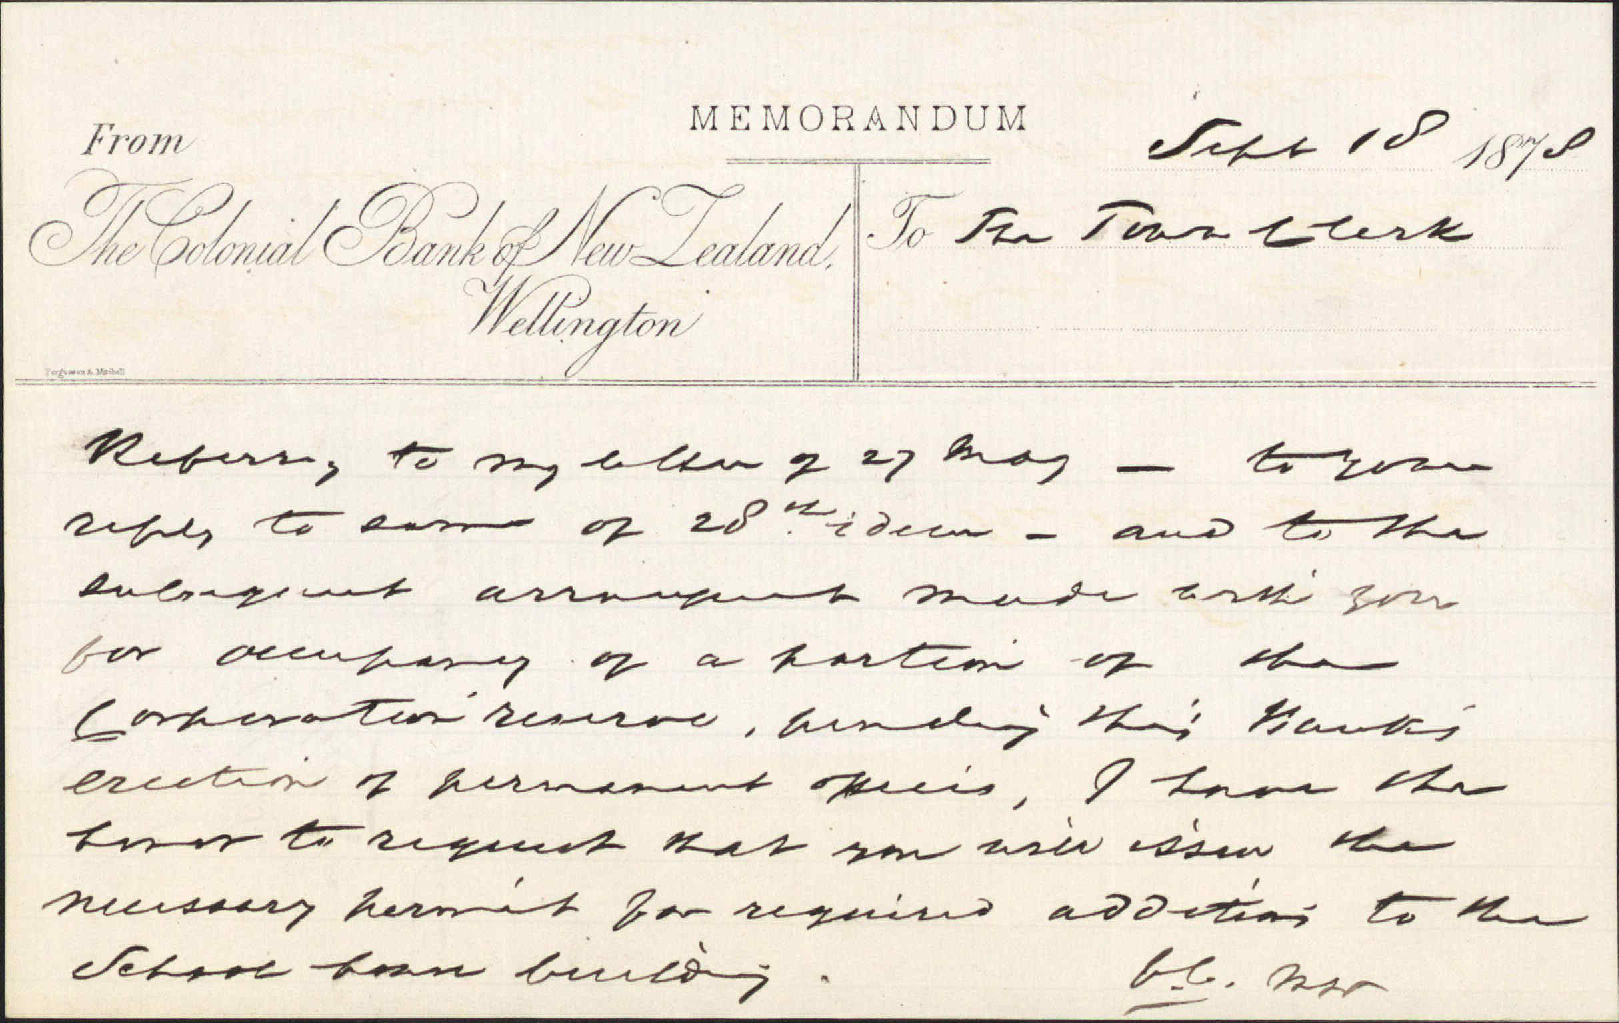 MEMORANDUM
From
Sept 18 1878
The Colonial Bank of New Zealand,
Wellington
To The Town Clerk
Fergusson & Mitchell
Referring to my letter of 27 May — to your
reply to same of 28th idem — and to the
subsequent arrangement made with you
for occupancy of a portion of the
Corporation reserve, pending this Bank's
erection of permanent offices, I have the
honor to request that you will issue the
necessary permit for required additions to the
School house building.